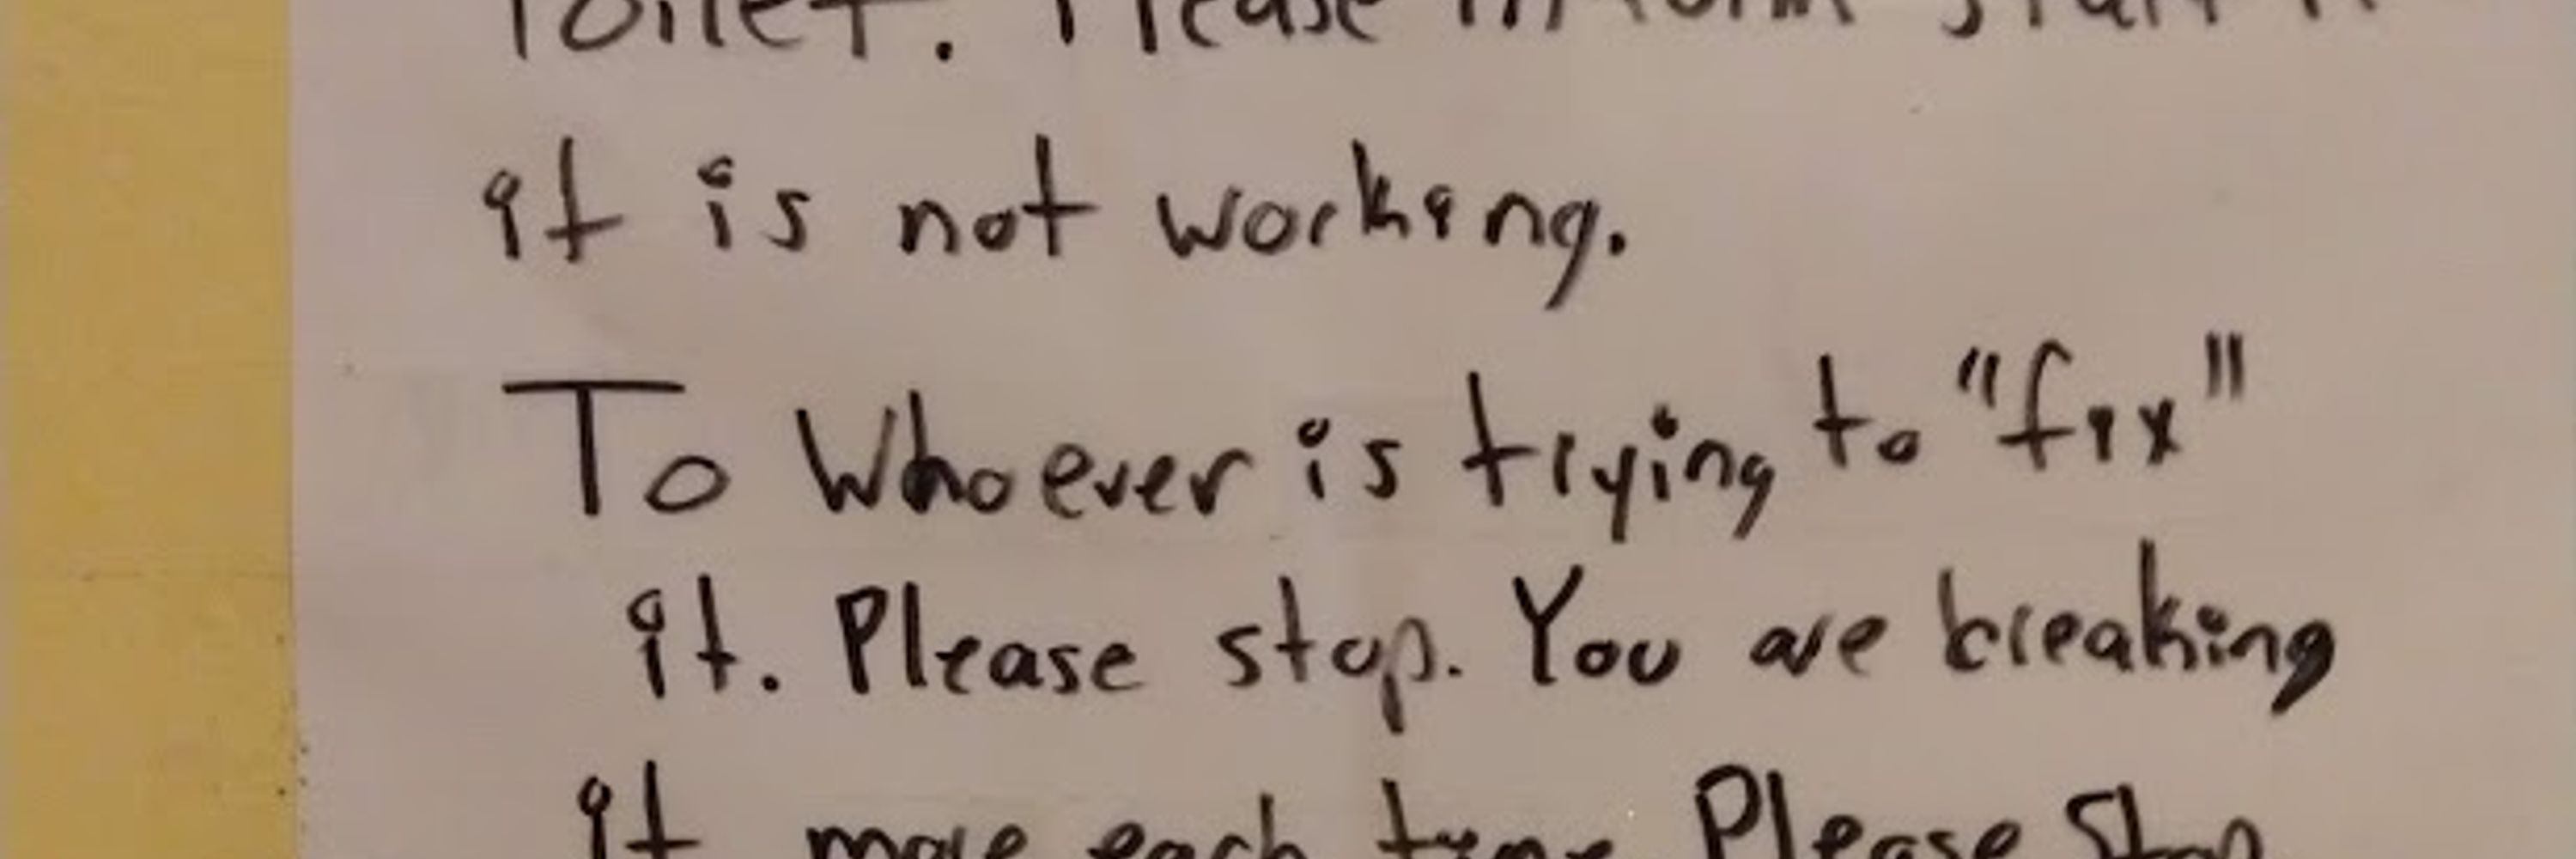 Toilet. Please inform staff if
it is not working.
To Whoever is trying to "fix"
it. Please stop. You are breaking
it more each time Please Stop